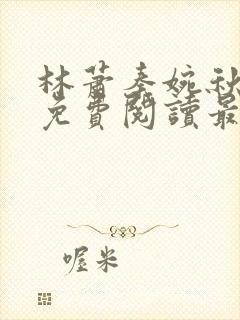 林蕭秦婉秋
免費閱讀最
喔米